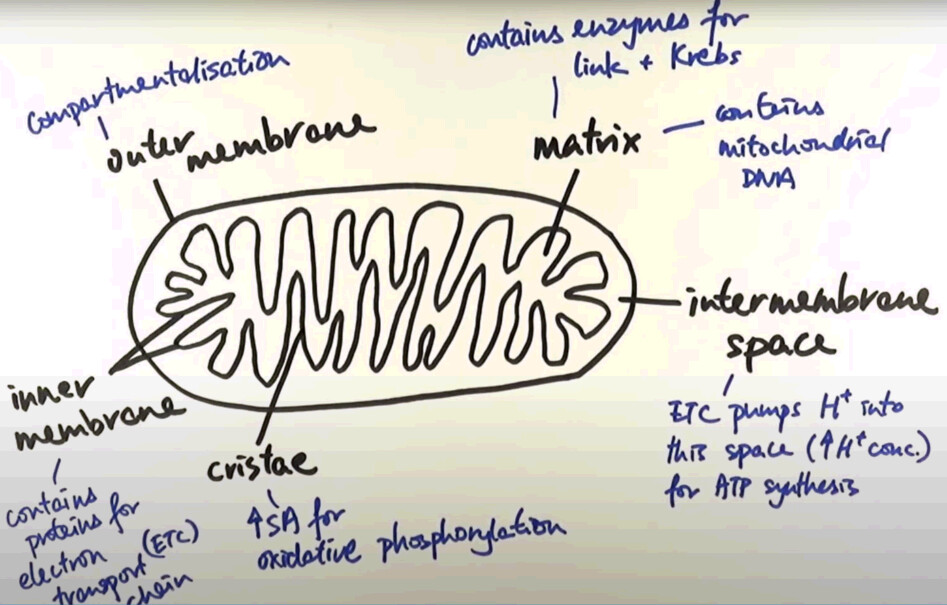 compartmentalisation
outer membrane
contains enzymes for
link + Krebs
matrix
contains
mitochondrial
DNA
intermembrane
space
ETC pumps H⁺ into
this space (↑H⁺ conc.)
for ATP synthesis
inner
membrane
contains
proteins for
electron (ETC)
transport
chain
cristae
↑SA for
oxidative phosphorylation